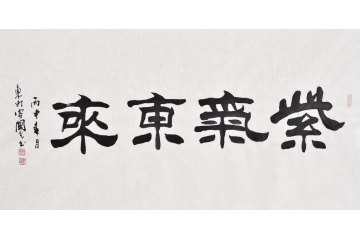 紫氣東來
丙申春月